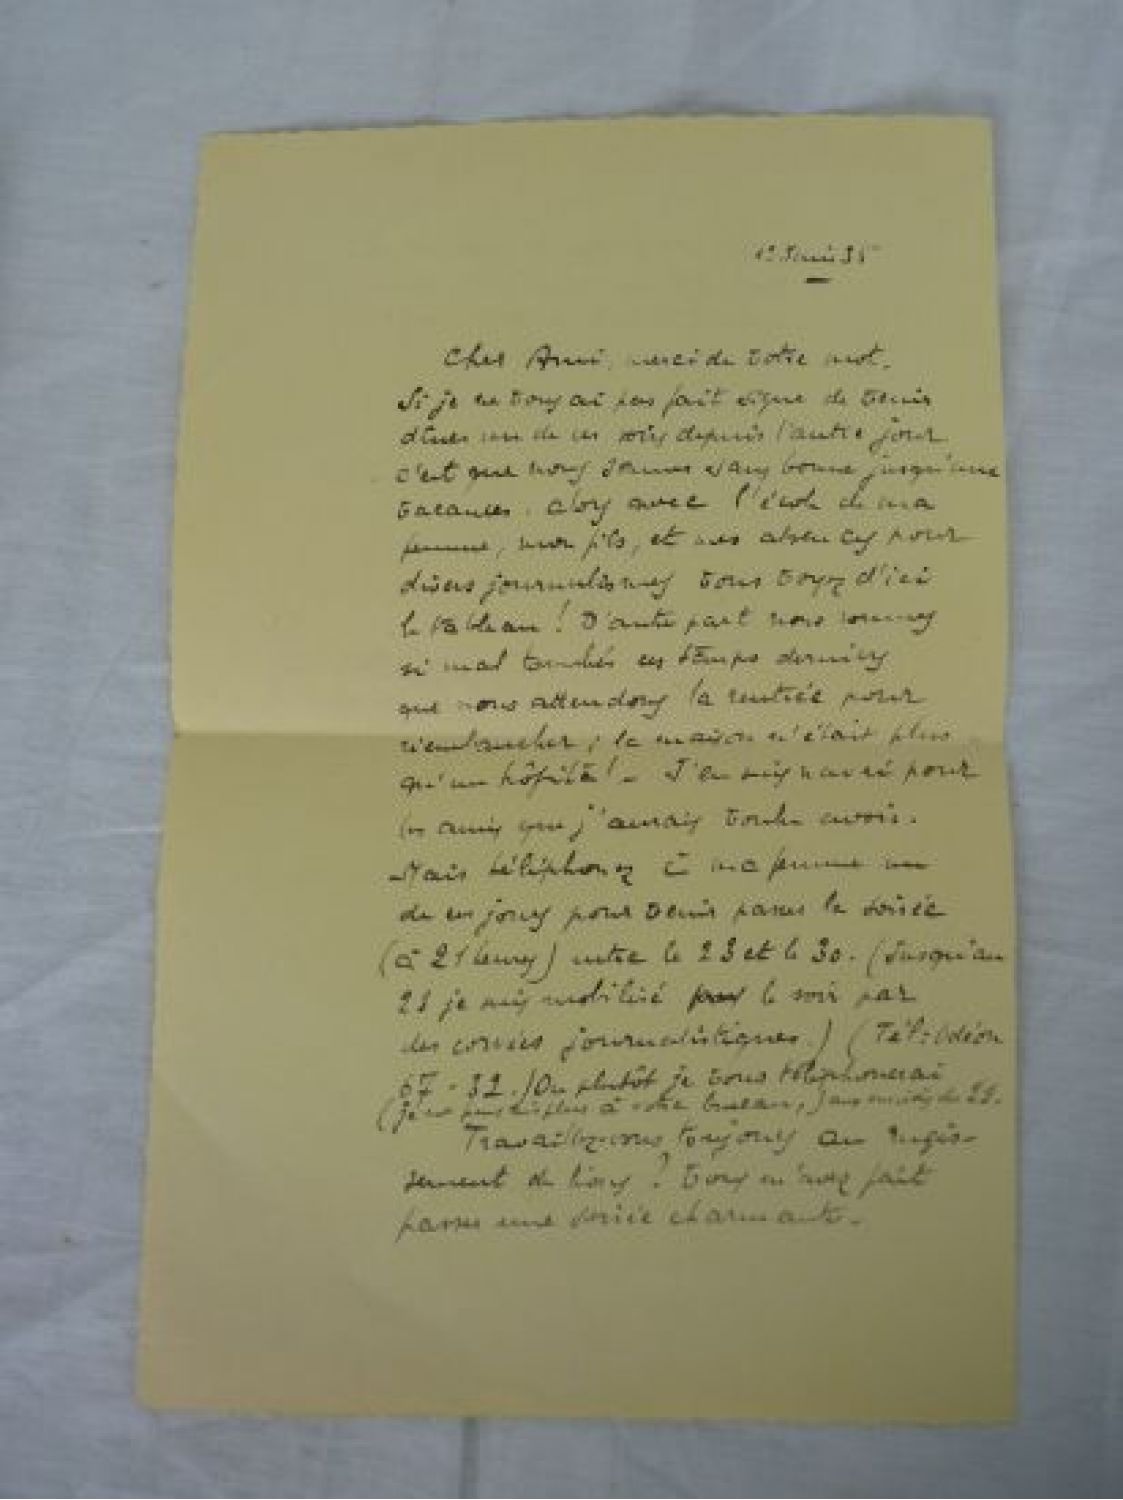 Juin 35
Cher Ami, merci de votre mot.
Si je ne vous ai pas fait signe de venir
dîner un de ces soirs depuis l'autre jour
c'est que nous sommes sans bonne jusqu'aux
vacances. alors avec l'école de ma
femme, mon fils, et mes absences pour
divers journalismes vous voyez d'ici
le tableau ! D'autre part nous sommes
si mal tombés ces temps derniers
que nous attendons la rentrée pour
réembaucher ; la maison n'était plus
qu'un hôpital ! - J'en suis navré pour
les amis que j'aurais voulu avoir.
Mais téléphonez à ma femme un
de ces jours pour venir passer la soirée
(à 21 heures) entre le 23 et le 30. (Jusqu'au
je suis mobilisé le soir par
des corvées journalistiques.) (Tél : Odéon
67 - 32.) Ou plutôt je vous téléphonerai
(je ne plus à votre bureau,) aux environs du 22.
Travaillez-vous toujours au rugis-
sement de lions ? Vous m'avez fait
passer une soirée charmante.